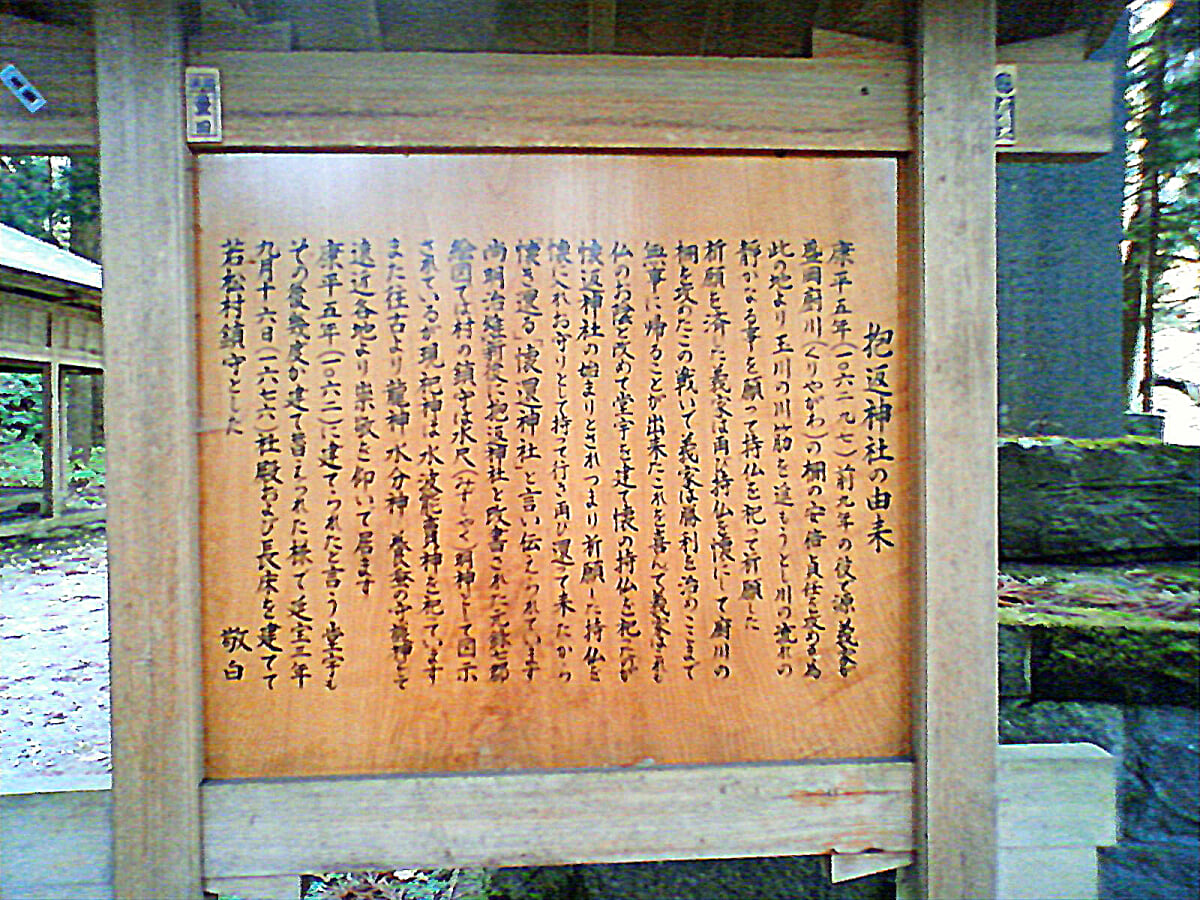 抱返神社の由来
康平五年(一〇六二九七)前九年の役で源義家が
盛岡厨川(くりやがわ)の柵の安倍貞任を攻める為
此の地より玉川の川筋を達もうとし川の流れの
静かなる事を願って持仏を祀って祈願した
祈願を済した義家は再び持仏を懐にして厨川の
柵を攻めたこの戦いで義家は勝利を治めここまで
無事に帰ることが出来たこれを喜んで義家はれも
仏のお陰と改めて堂宇を建て懐の持仏を祀たのが
懐返神社の始まりとされつまり祈願した持仏を
懐に入れお守りとして持って行き再び還って来たから
懐き還る「懐還神社」と言い伝えられています
尚明治維新後に抱返神社と改書された元禄七郡
絵図では村の鎮守は水尺(みずしゃく)明神として図示
されているが現祀神は水波能賣神を祀っています
また往古より龍神 水分神 養蚕の守龍神として
遠近各地より崇敬を仰いで居ます
康平五年(一〇六二)に建てられたと言う堂宇も
その後幾度か建て替えられた様で延宝三年
九月十六日(一六七六)社殿および長床を建てて
若松村鎮守とした
敬白
豊田